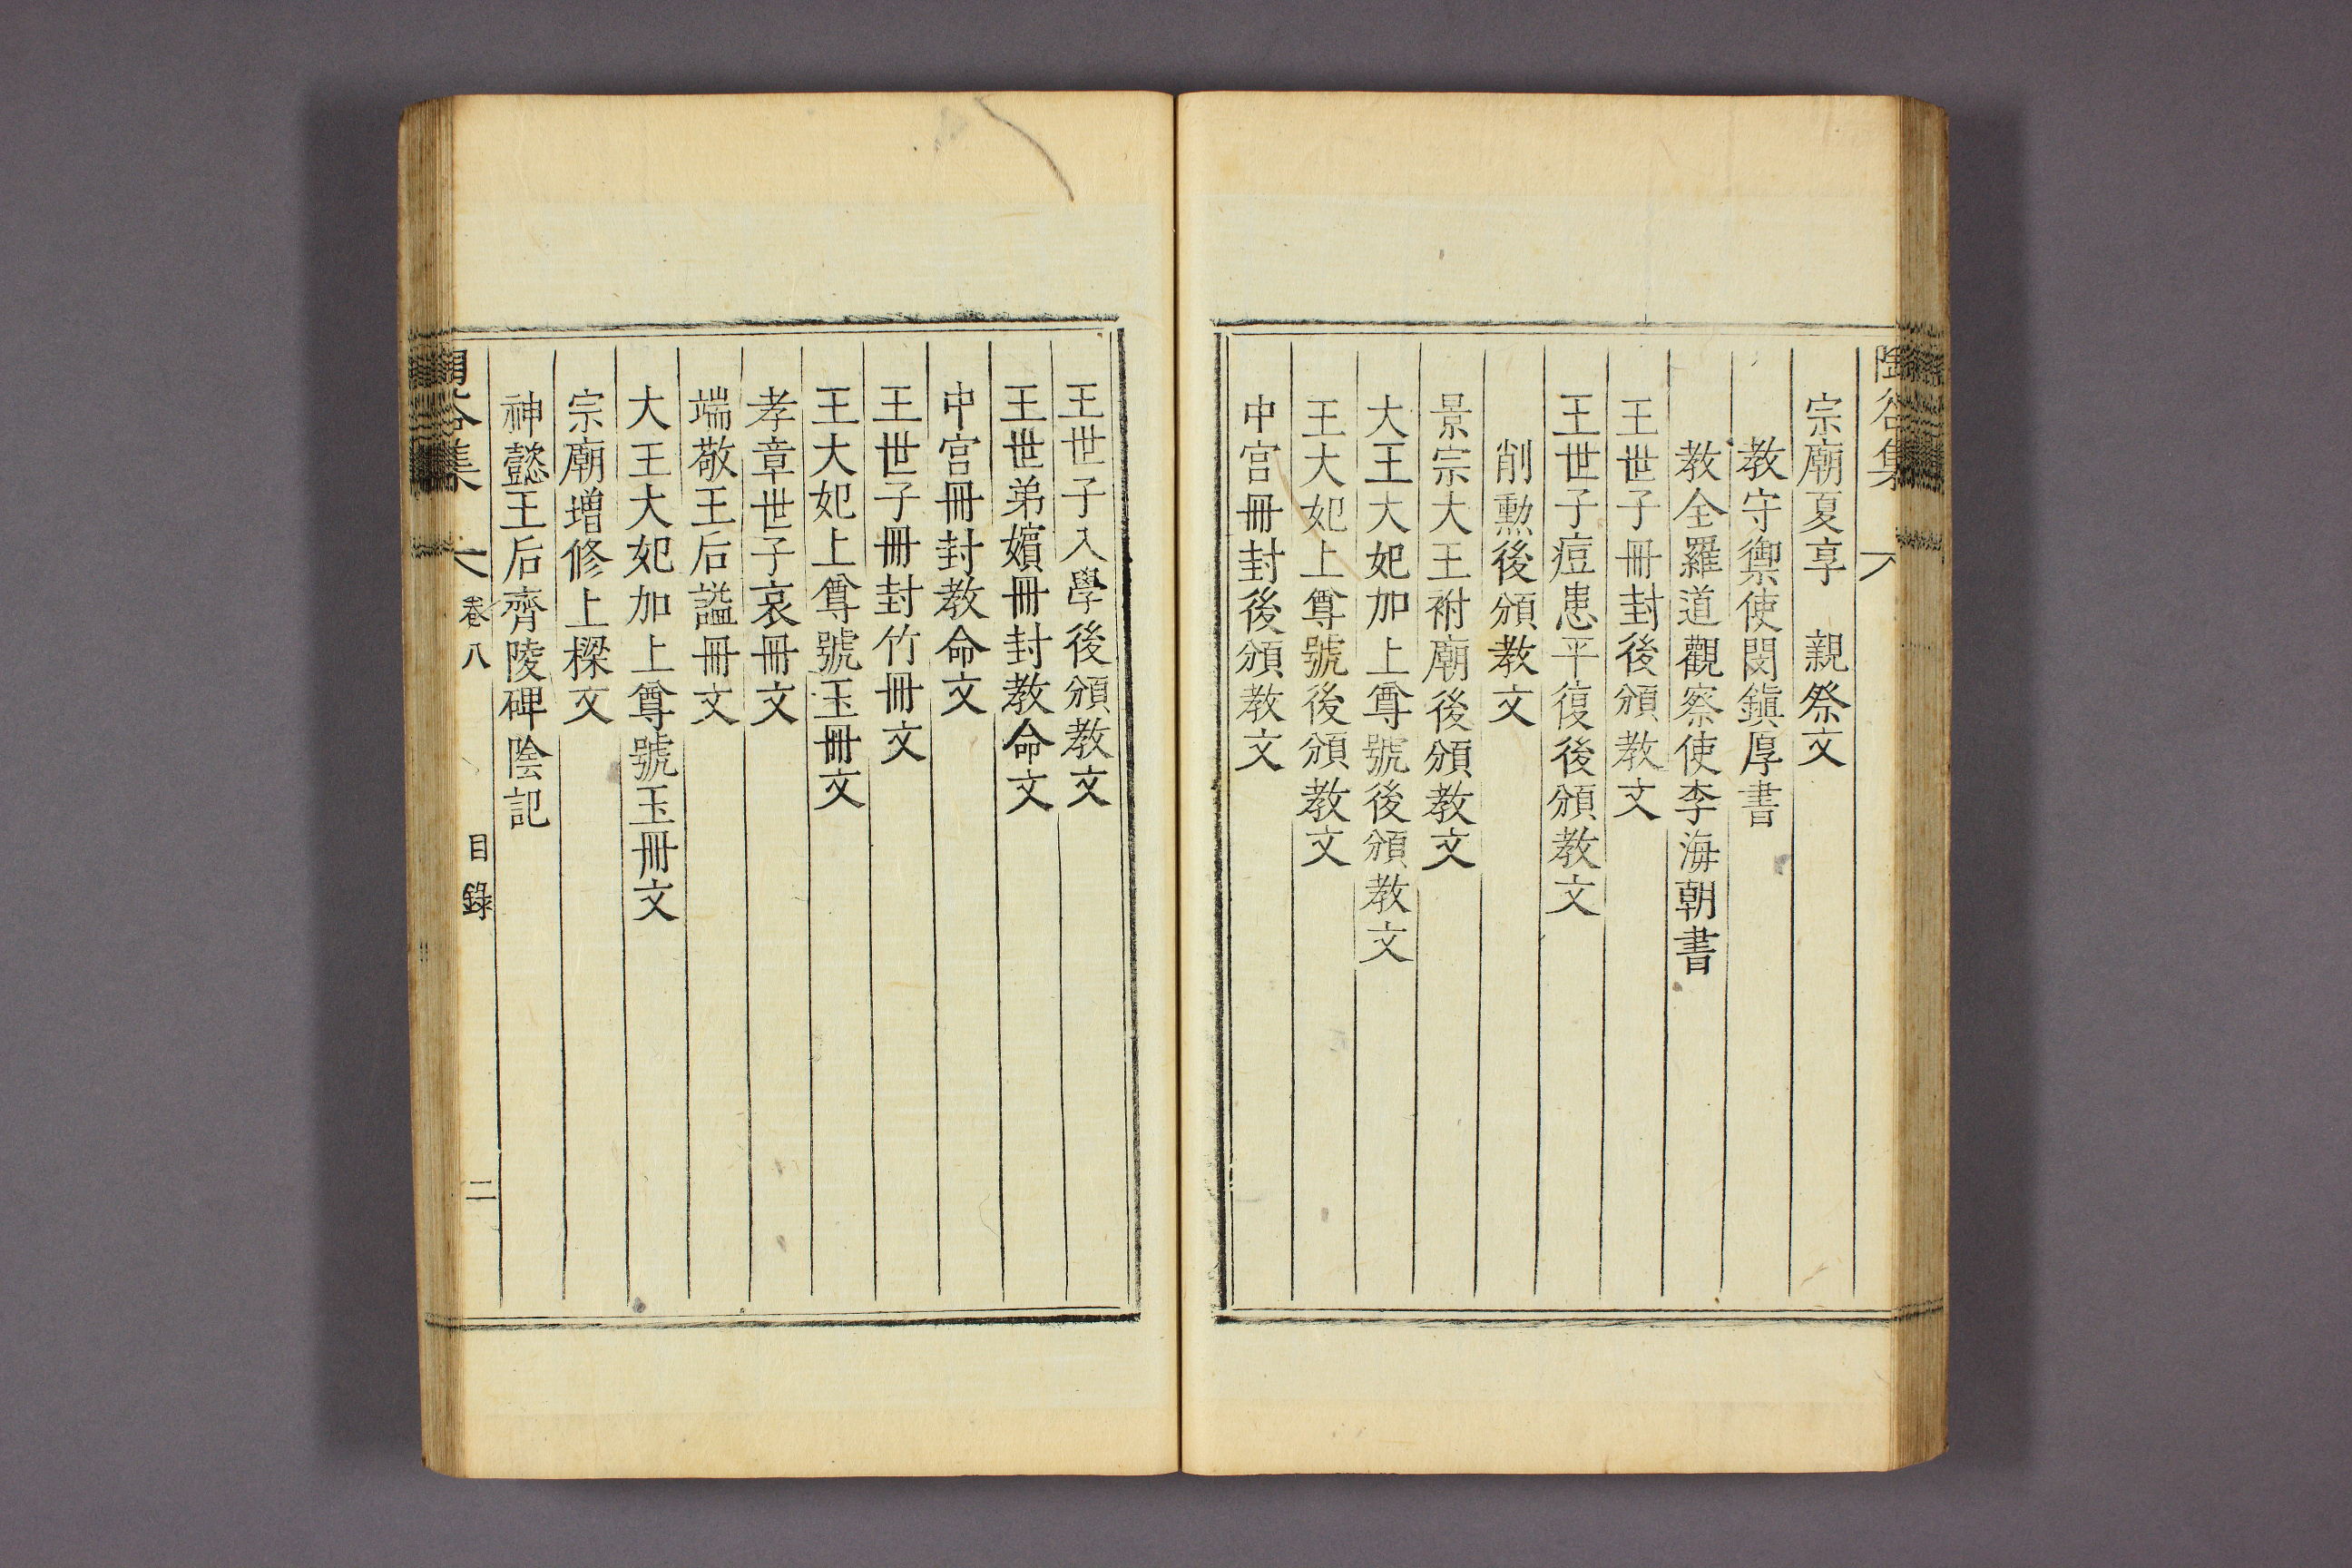 陶谷集
宗廟夏享　親祭文
教守禦使閔鎭厚書
教全羅道觀察使李海朝書
王世子冊封後頒教文
王世子痘患平復後頒教文
削勲後頒教文
景宗大王祔廟後頒教文
大王大妃加上尊號後頒教文
王大妃上尊號後頒教文
中宮冊封後頒教文
王世子入學後頒教文
王世弟嬪冊封教命文
中宮冊封教命文
王世子冊封竹冊文
王大妃上尊號玉冊文
孝章世子哀冊文
端敬王后諡冊文
大王大妃加上尊號玉冊文
宗廟增修上樑文
神懿王后齊陵碑陰記
陶谷集　卷八　目錄　二